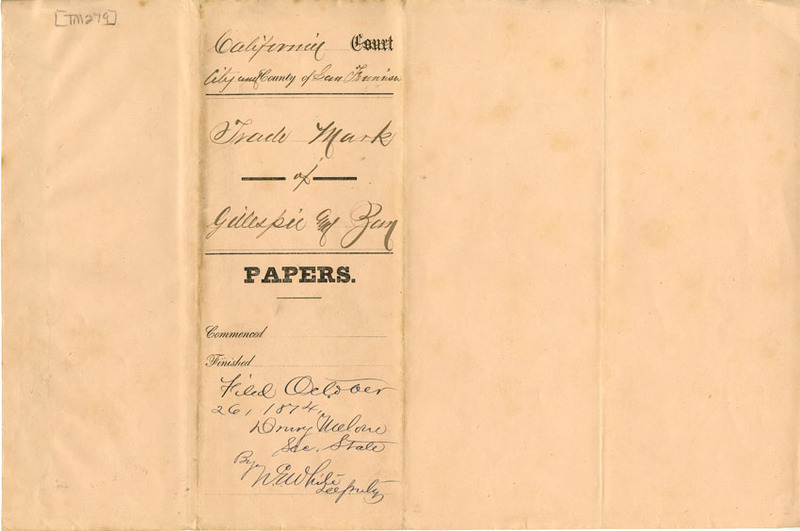 [TM279]
California Court
City and County of San Francisco
Trade Mark
of
Gillespie and Zan
PAPERS.
Commenced
Finished
Filed October
26, 1874.
Drury Melone
Sec. State
By W.E. White
Deputy